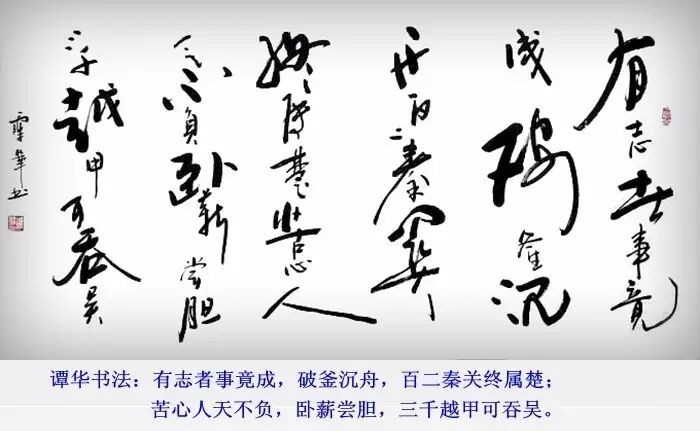 有志者事竟
成破釜沉
舟百二秦關
終屬楚苦心人
天不負卧薪尝胆
三千越甲可吞吴
覃華书
谭华书法：有志者事竟成，破釜沉舟，百二秦关终属楚；
苦心人天不负，卧薪尝胆，三千越甲可吞吴。